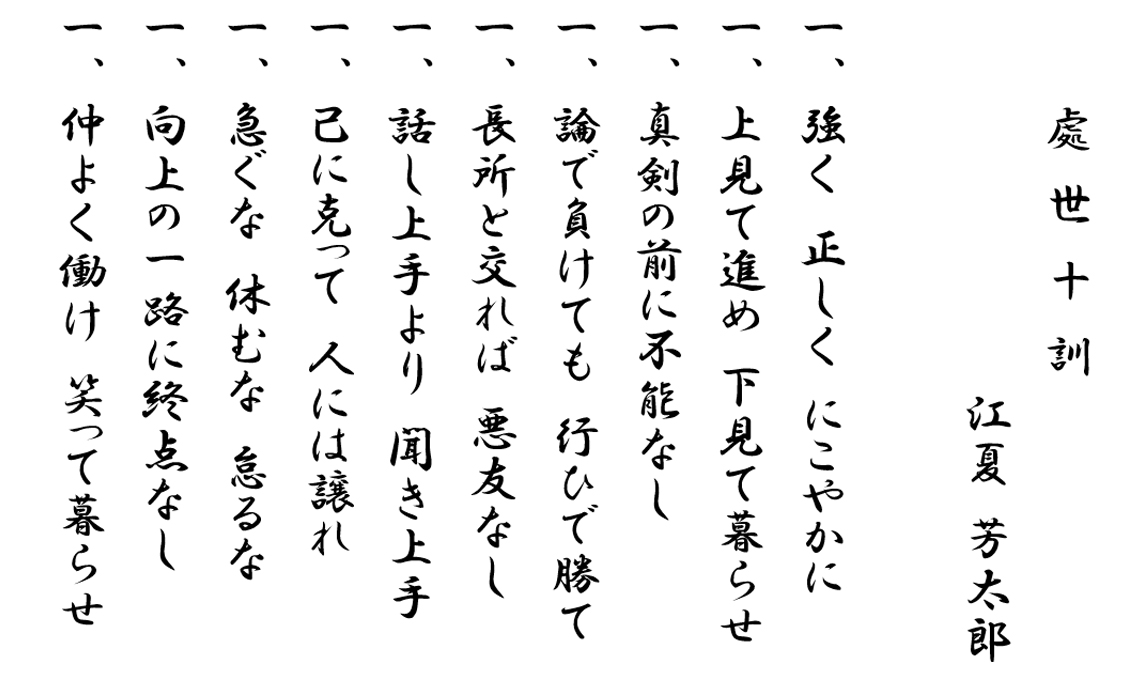 處世十訓
江夏 芳太郎
一、強く 正しく にこやかに
一、上見て進め 下見て暮らせ
一、真剣の前に不能なし
一、論で負けても 行ひで勝て
一、長所と交れば 悪友なし
一、話し上手より 聞き上手
一、己に克って 人には譲れ
一、急ぐな 休むな 怠るな
一、向上の一路に終点なし
一、仲よく働け 笑って暮らせ